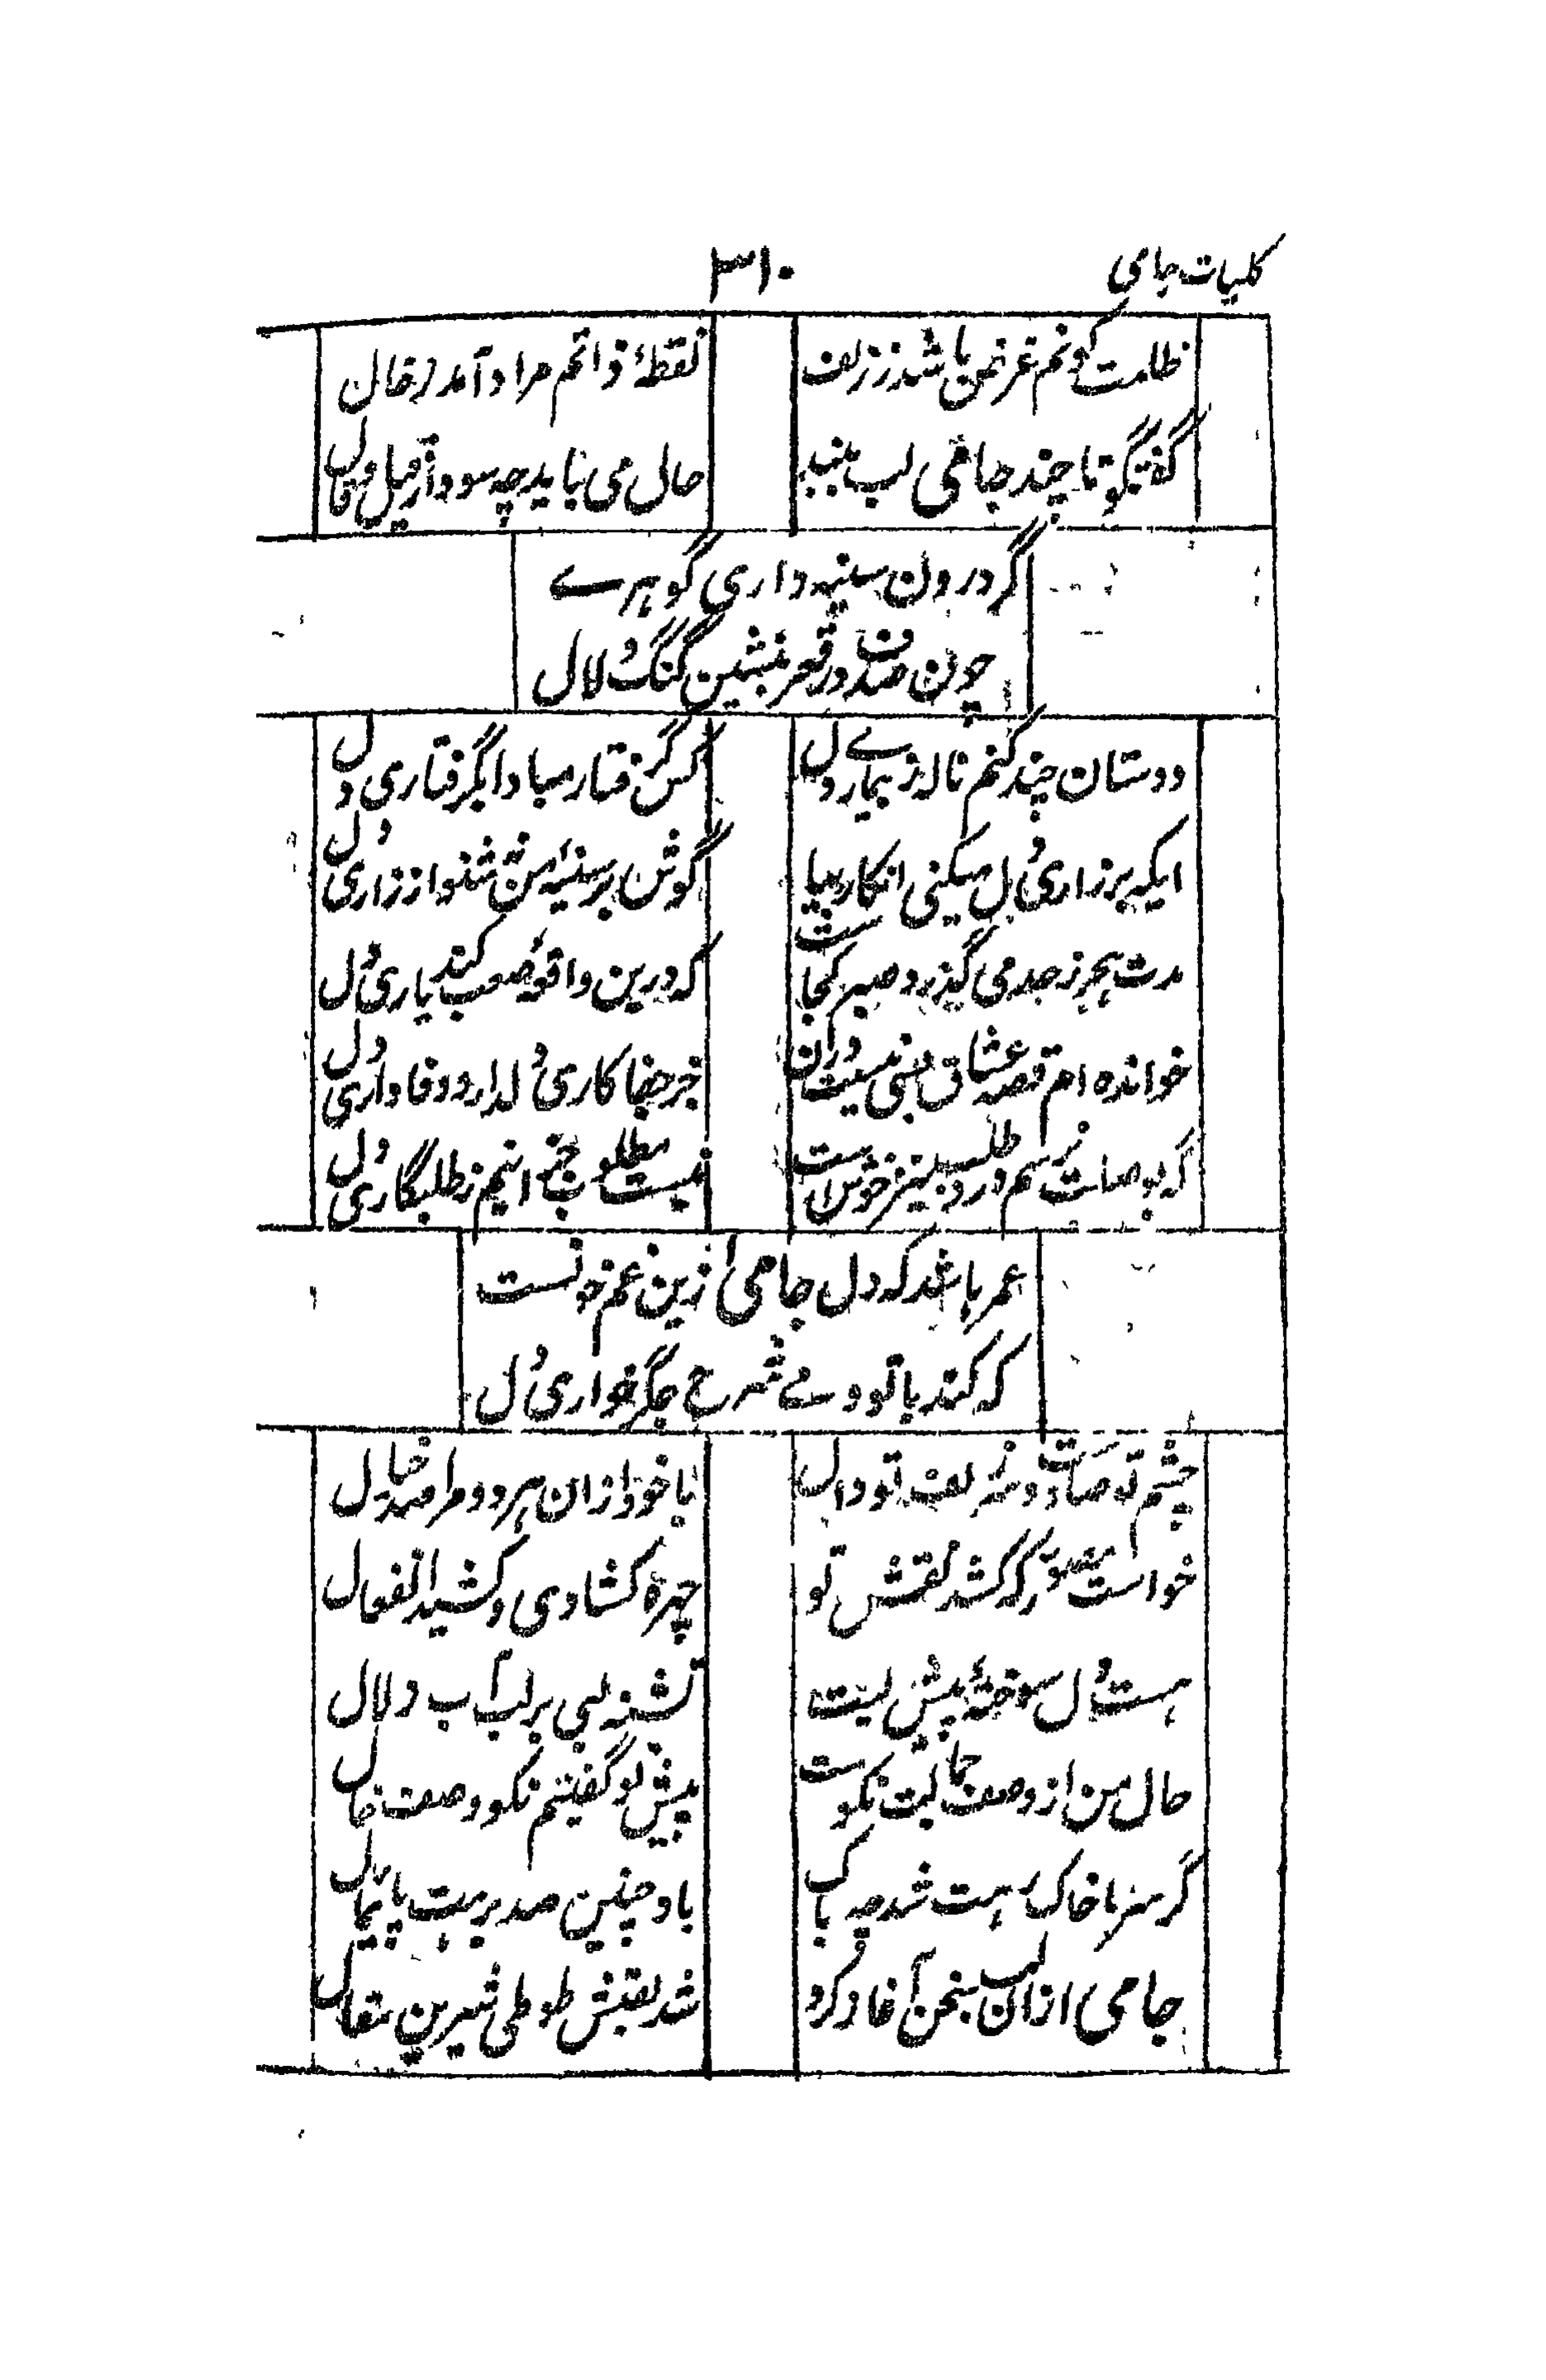 کلیات جامی
۳۱۰
ظلمت کونم غرض باشد ز زلف
نقطهٔ ذاتم مراد آمد ز خال
گفتگو تا چند جامی لب ببند
حال می باید چه سود از قیل و قال
گر درون سینه داری گوهرے
چون صدف در قعر بنشین گنگ و لال
دوستان چند کنم ناله ز بیماری دل
کس گرفتار مبادا بگرفتاری دل
ایکه بر زاری دل میکنی انکار بیا
گوش بر سینهٔ من نه بشنو از زاری دل
مدت هجر ز حد می گذرد صبر کجاست
که درین واقعهٔ صعب کند یاری دل
خوانده ام قصهٔ عشاق بسی نیست دران
جز جفا کاری دلدار و وفاداری دل
گر بوصلت نرسم درد طلب نیز خوش است
نیست مطلوب جز اینم ز طلبگاری دل
عمر ها شد که دل جامی ازین غم خونست
که کند با تو دمے شرح جگر خواری دل
چشم تو صادست و سر زلف تو دال
با خود ازان هر دو مرا صد خیال
خواست مصور که کشد نقش تو
چهره کشادی و کشید انفعال
هست دل سوختهٔ پیش لبت
تشنه لبی بر لب آب زلال
حال من از وصف جمالت نکوست
پیش تو گفتم نکو وصف حال
گر سر ما خاک رهت شد چه باک
باد چنین صد برهت پایمال
جامی ازان لب سخن آغاز کرد
شد لقبش طوطی شیرین مقال